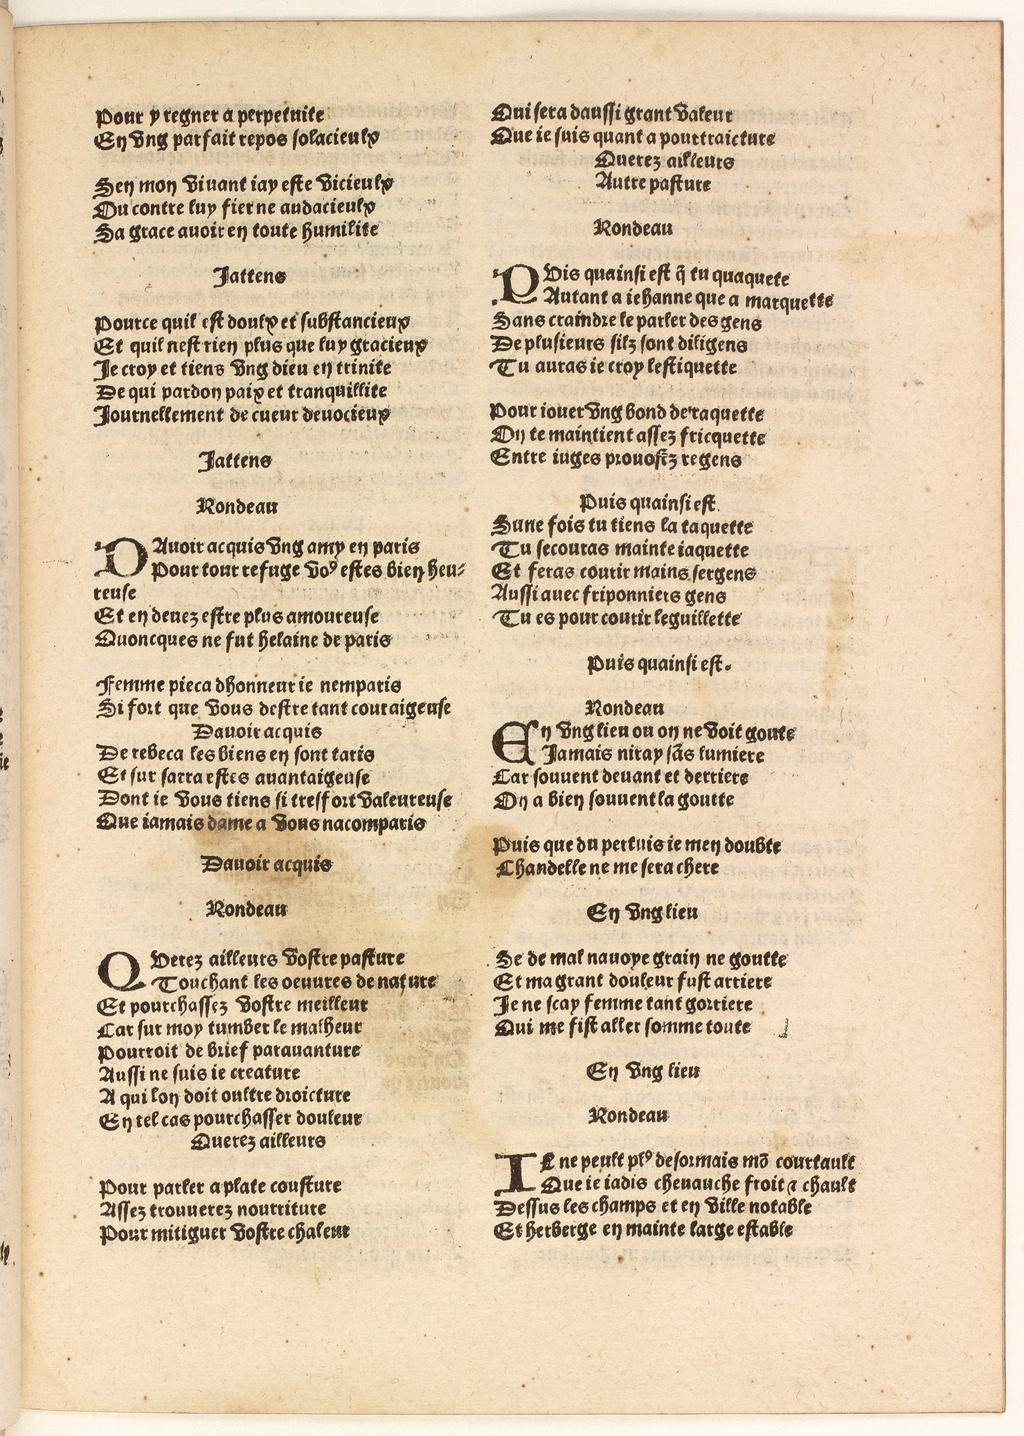 Pour y regner a perpetuite
En vng parfait repos solacieulx
Sen mon viuant iay este vicieulx
Ou contre luy fier ne audacieulx
Sa grace auoir en toute humilite
Jattens
Pource quil est doulx et substancieux
Et quil nest rien plus que luy gracieux
Je croy et tiens vng dieu en trinite
De qui pardon paix et tranquillite
Journellement de cueur deuocieux
Jattens
Rondeau
DAuoir acquis vng amy en paris
Pour tour refuge voꝰ estes bien heu-
reuse
Et en deuez estre plus amoureuse
Quoncques ne fut helaine de paris
Femme pieca dhonneur ie nemparis
Si fort que vous destre tant couraigeuse
Dauoir acquis
De rebeca les biens en sont taris
Et sur sarra estes auantaigeuse
Dont ie vous tiens si tresfort valeureuse
Que iamais dame a vous nacomparis
Dauoir acquis
Rondeau
QVerez ailleurs vostre pasture
Touchant les oeuures de nature
Et pourchassez vostre meilleur
Car sur moy tumber le malheur
Pourroit de brief parauanture
Aussi ne suis ie creature
A qui lon doit oultre droicture
En tel cas pourchasser douleur
Querez ailleurs
Pour parler a plate cousture
Assez trouuerez nourriture
Pour mitiguer vostre chaleur
Qui sera daussi grant valeur
Que ie suis quant a pourtraicture
Querez ailleurs
Autre pasture
Rondeau
PVis quainsi est q̃ tu quaquete
Autant a iehanne que a marquette
Sans craindre le parler des gens
De plusieurs silz sont diligens
Tu auras ie croy lestiquette
Pour iouer vng bond de raquette
On te maintient assez fricquette
Entre iuges prouostz regens
Puis quainsi est.
Sune fois tu tiens la taquette
Tu secouras mainte iaquette
Et feras courir mains sergens
Aussi auec friponniers gens
Tu es pour courir leguillette
Puis quainsi est.
Rondeau
En vng lieu ou on ne voit goute
Jamais niray sãs lumiere
Car souuent deuant et derriere
On a bien souuent la goutte
Puis que du pertuis ie men doubte
Chandelle ne me sera chere
En vng lieu
Se de mal nauoye grain ne goutte
Et ma grant douleur fust arriere
Je ne scay femme tant gorriere
Qui me fist aller somme toute
En vng lieu
Rondeau
IL ne peult plꝰ desormais mõ courtault
Que ie iadis cheuauche froit ⁊ chault
Dessus les champs et en ville notable
Et herberge en mainte large estable